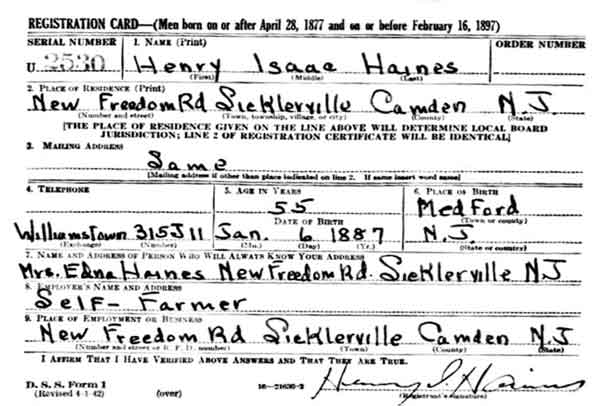 REGISTRATION CARD—(Men born on or after April 28, 1877 and on or before February 16, 1897)
SERIAL NUMBER 1. NAME (Print) ORDER NUMBER
U 2530 Henry Isaac Haines
(First) (Middle) (Last)
2. PLACE OF RESIDENCE (Print)
New Freedom Rd Sicklerville Camden N.J.
(Number and street) (Town, township, village, or city) (County) (State)
[THE PLACE OF RESIDENCE GIVEN ON THE LINE ABOVE WILL DETERMINE LOCAL BOARD
JURISDICTION; LINE 2 OF REGISTRATION CERTIFICATE WILL BE IDENTICAL]
3. MAILING ADDRESS
Same
[Mailing address if other than place indicated on line 2. If same insert word same]
4. TELEPHONE 5. AGE IN YEARS 6. PLACE OF BIRTH
55 Medford
DATE OF BIRTH (Town or county)
Williamstown 315J11 Jan. 6 1887 N.J.
(Exchange) (Number) (Mo.) (Day) (Yr.) (State or country)
7. NAME AND ADDRESS OF PERSON WHO WILL ALWAYS KNOW YOUR ADDRESS
Mrs. Edna Haines New Freedom Rd. Sicklerville NJ
8. EMPLOYER'S NAME AND ADDRESS
Self- Farmer
9. PLACE OF EMPLOYMENT OR BUSINESS
New Freedom Rd Sicklerville Camden N.J
(Number and street or R. F. D. number) (Town) (County) (State)
I AFFIRM THAT I HAVE VERIFIED ABOVE ANSWERS AND THAT THEY ARE TRUE.
D. S. S. Form 1
(Revised 4-1-42) (over) 16—21630-2 Henry I. Haines
(Registrant's signature)